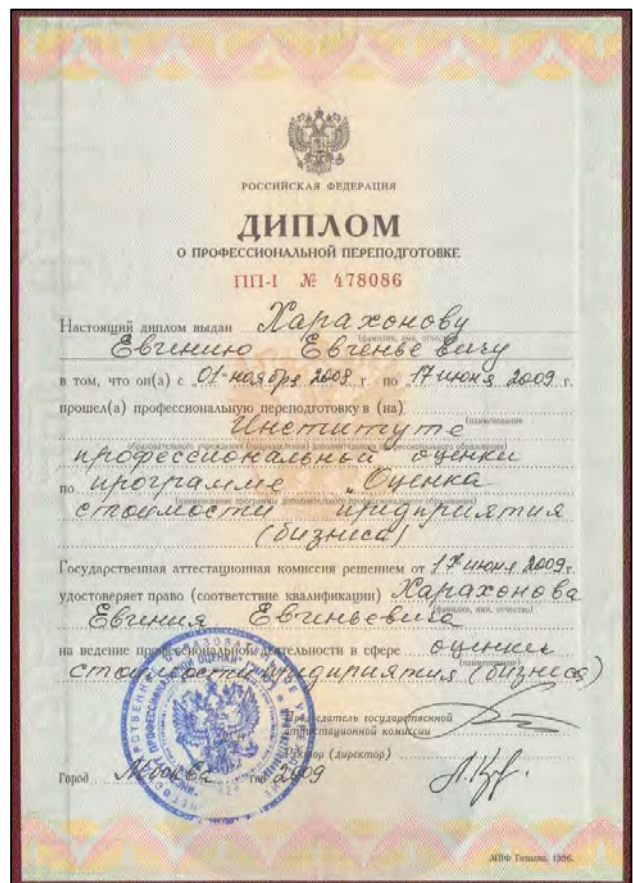 РОССИЙСКАЯ ФЕДЕРАЦИЯ
ДИПЛОМ
О ПРОФЕССИОНАЛЬНОЙ ПЕРЕПОДГОТОВКЕ
ПП-I № 478086
Настоящий диплом выдан Харахонову
(фамилия, имя, отчество)
Евгению Евгеньевичу
в том, что он(а) с „01" ноября 2008 г. по „17 июня 2009 г.
прошел(а) профессиональную переподготовку в (на)
(наименование
Институте
образовательного учреждения (подразделения) дополнительного профессионального образования)
профессиональной оценки
по программе „Оценка
(наименование программы дополнительного профессионального образования)
стоимости предприятия
(бизнеса)
Государственная аттестационная комиссия решением от 17 июня 2009 г.
удостоверяет право (соответствие квалификации) Харахонова
(фамилия, имя, отчество)
Евгения Евгеньевича
на ведение профессиональной деятельности в сфере оценки
(наименование)
стоимости предприятия (бизнеса)
Председатель государственной
аттестационной комиссии
Ректор (директор)
Город Москва год 2009
МПФ Гознака. 1996.